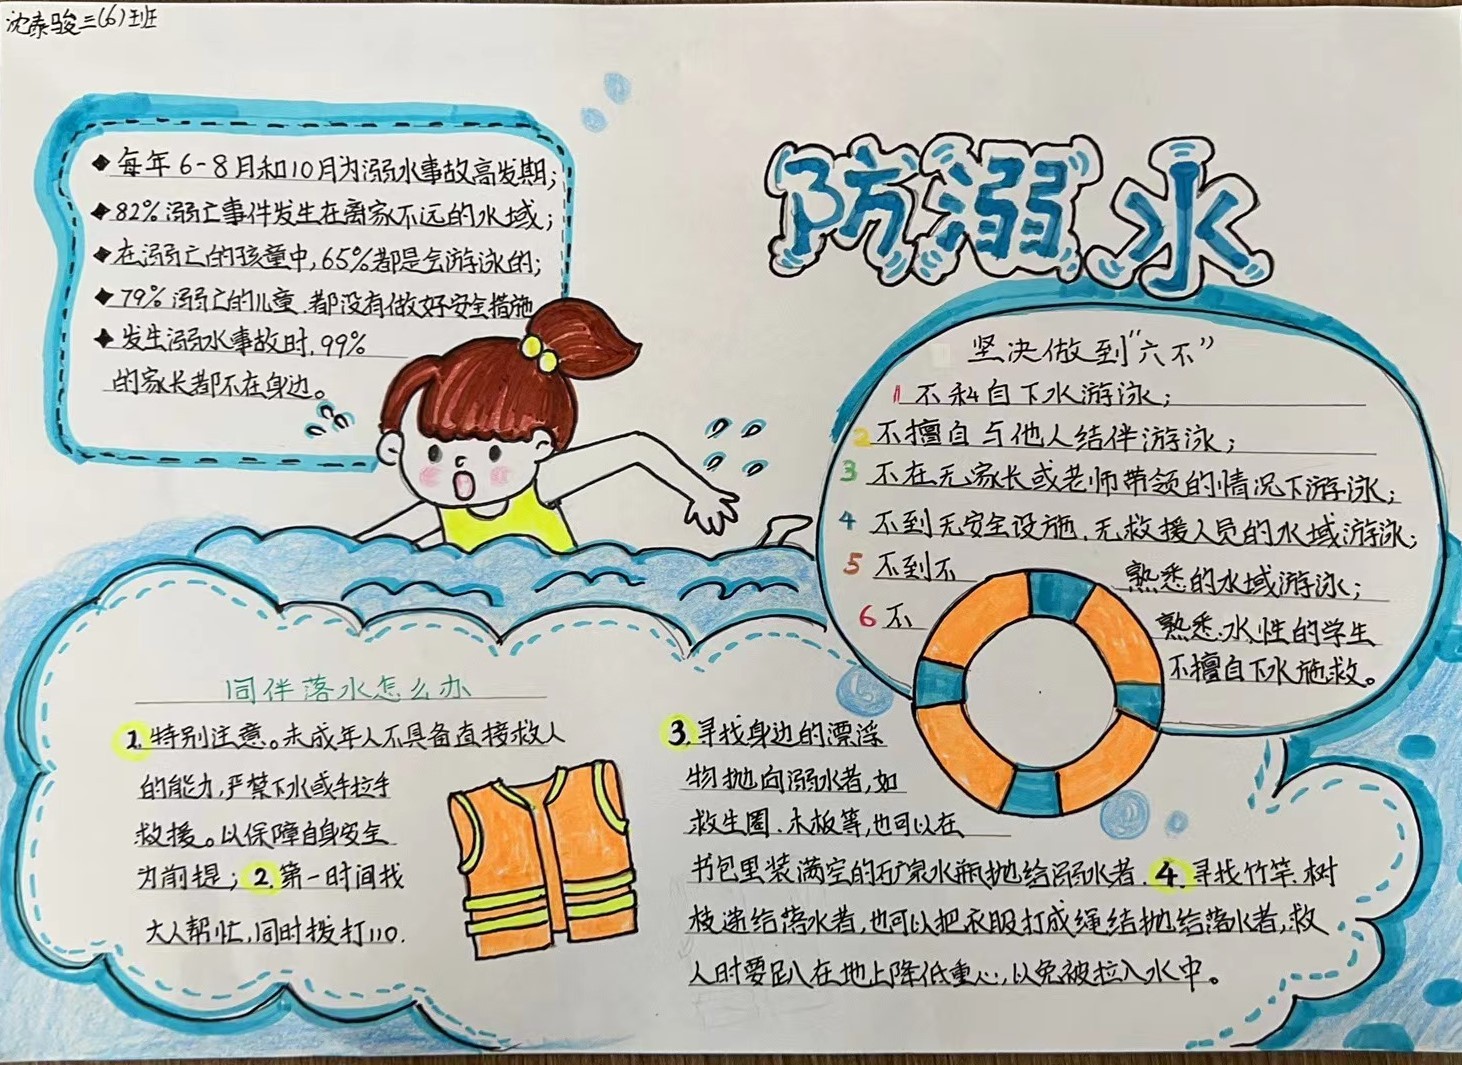 沈泰骏三(6)班
防溺水
◆每年6-8月和10月为溺水事故高发期;
◆82%溺亡事件发生在离家不远的水域;
◆在溺亡的孩童中,65%都是会游泳的;
◆79%溺亡的儿童.都没有做好安全措施
◆发生溺水事故时,99%
的家长都不在身边。
坚决做到"六不"
1 不私自下水游泳;
2 不擅自与他人结伴游泳;
3 不在无家长或老师带领的情况下游泳;
4 不到无安全设施、无救援人员的水域游泳;
5 不到不熟悉的水域游泳;
6 不熟悉.水性的学生
不擅自下水施救。
同伴落水怎么办
1.特别注意。未成年人不具备直接救人
的能力,严禁下水或手拉手
救援。以保障自身安全
为前提;2.第一时间找
大人帮忙,同时拨打110.
3.寻找身边的漂浮
物抛向溺水者,如
救生圈、木板等,也可以在
书包里装满空的矿泉水瓶抛给溺水者.4.寻找竹竿、树
枝递给落水者,也可以把衣服打成绳结抛给落水者,救
人时要趴在地上降低重心,以免被拉入水中。